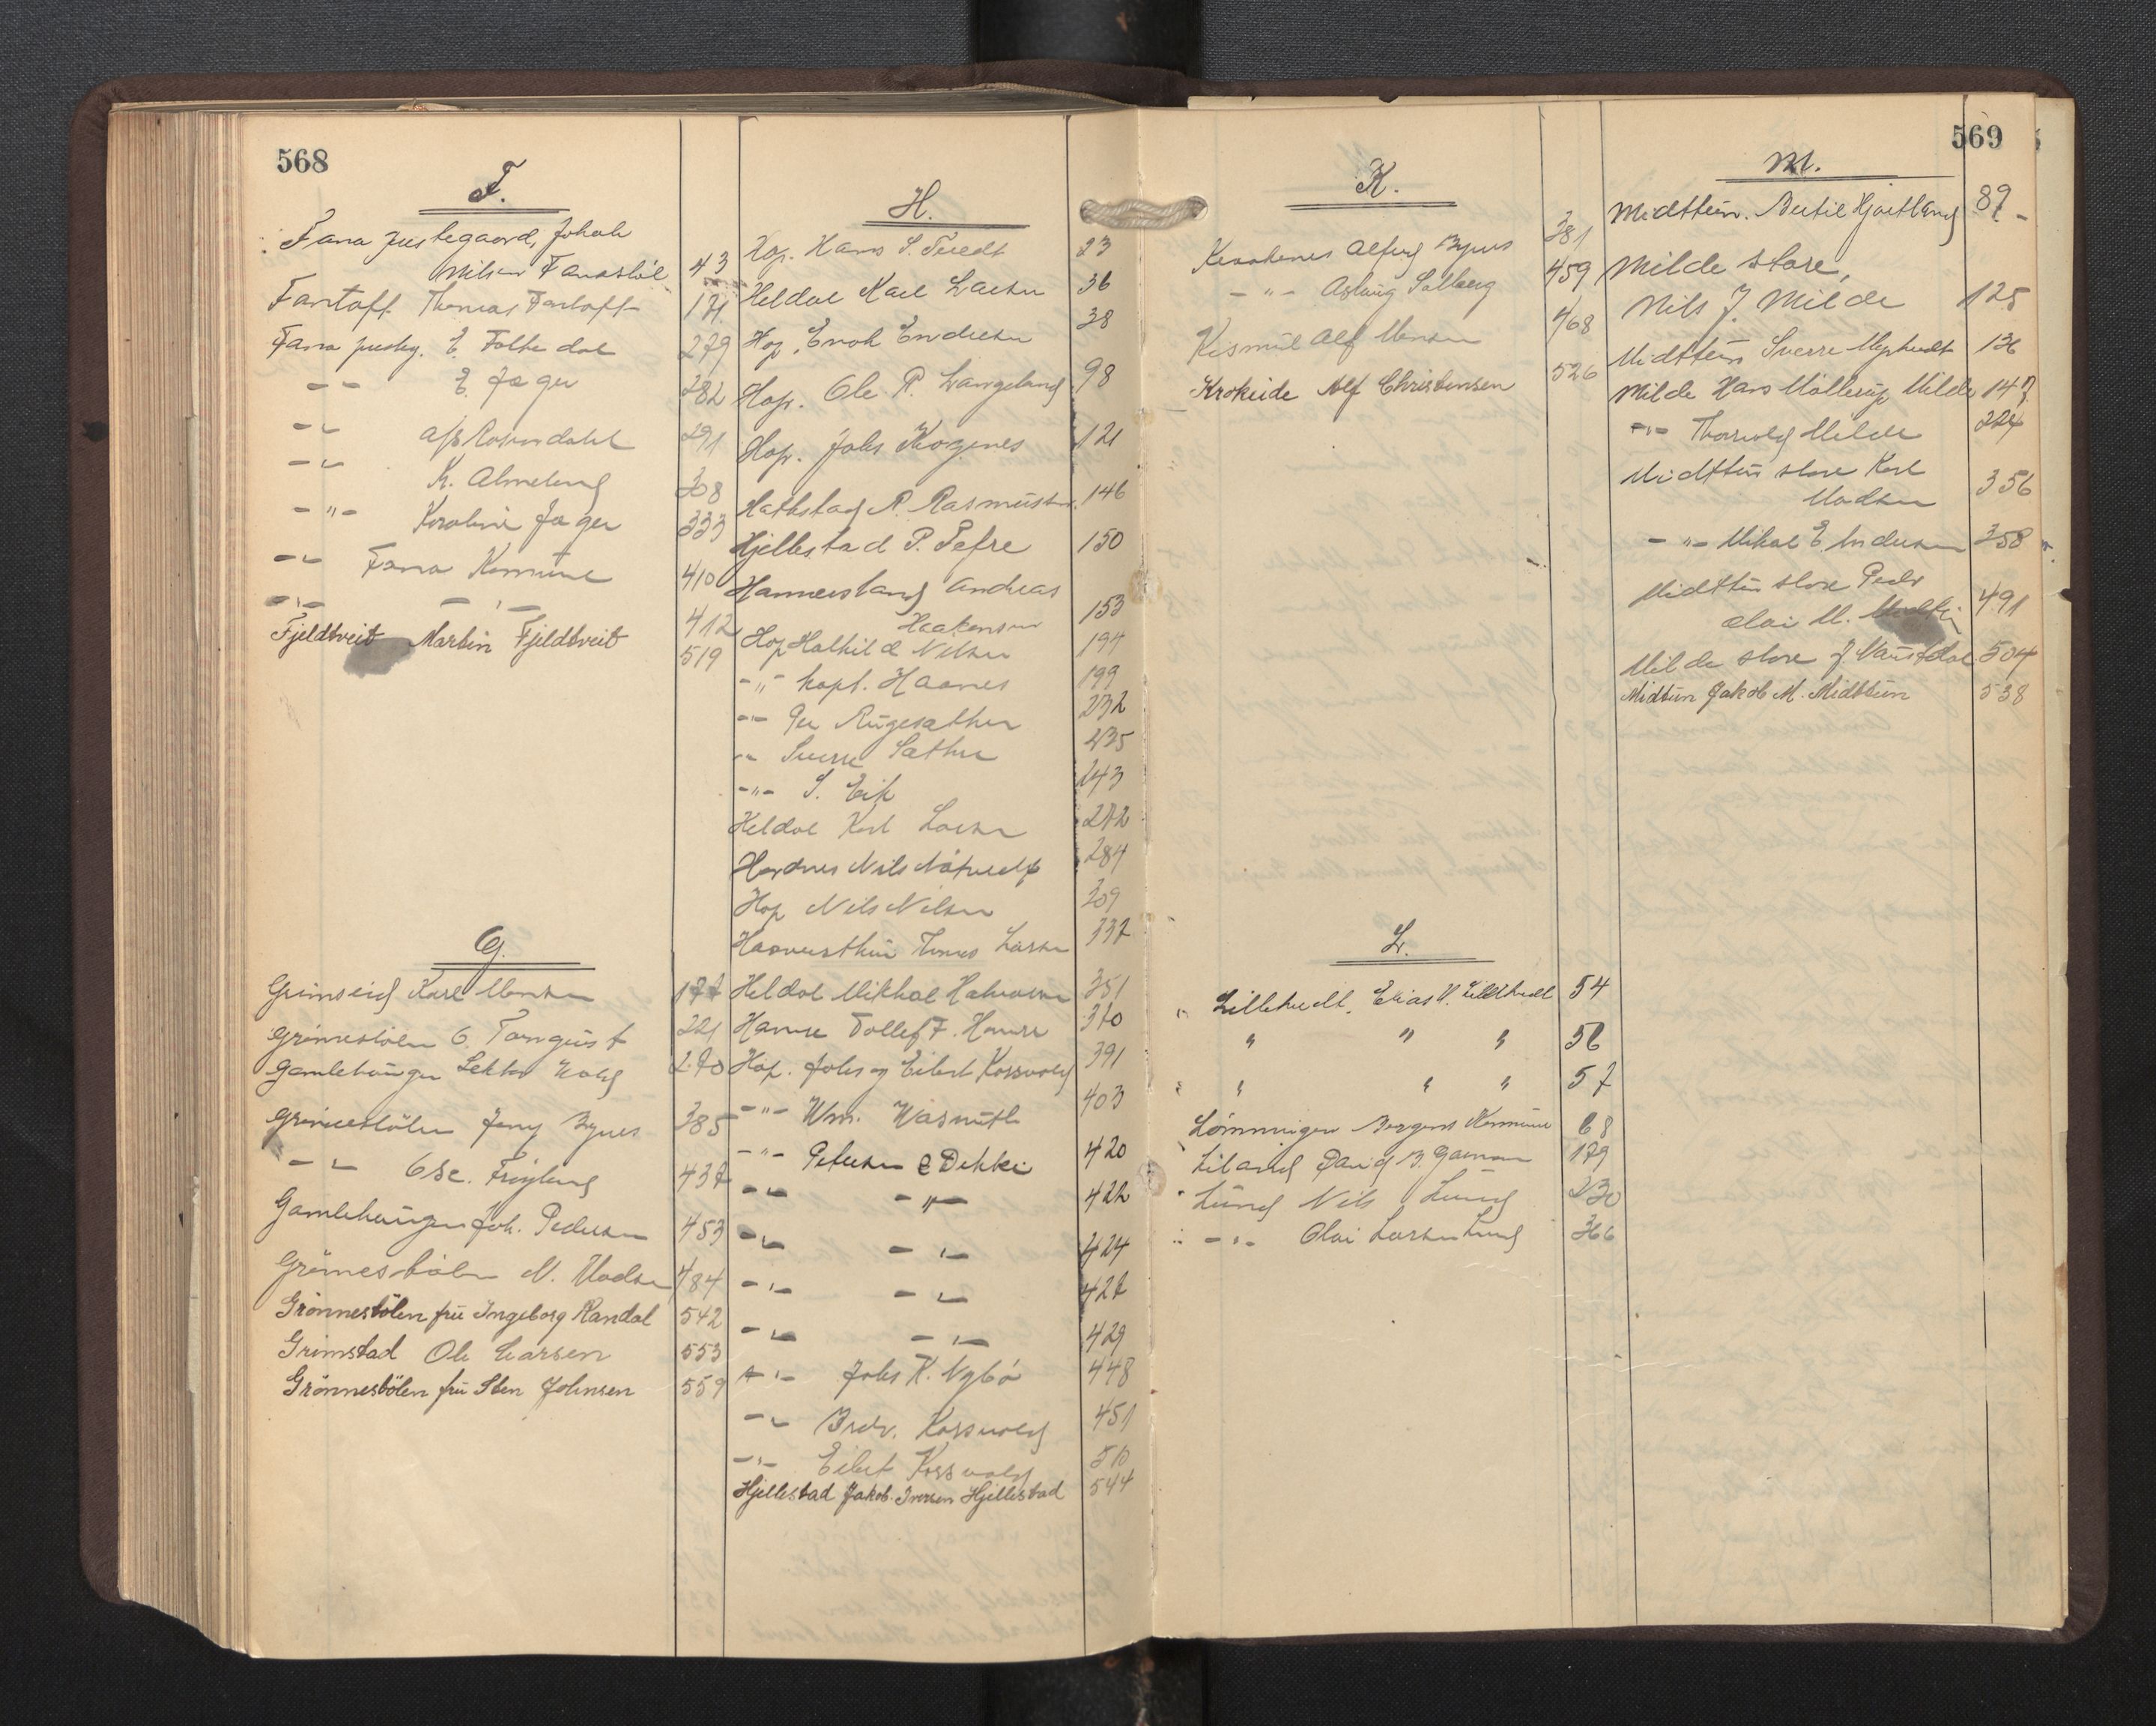 568
F.
Fana Johan
Nilsen 43
Fantoft Thomas Fantoft 121
Fana E. 279
E. Jæger 282
Rosendahl 291
K. Almeland 308
-"- Karoline Jæger 333
Fana Komune 410
412
Fjeldtveit Martin Fjeldtveit 519
G.
Grimseid Karl Monsen 177
Grönnestölen C. Tornquist 221
Gamlehaugen Lektor 270
Grönnestölen Jeny 385
437
Gamlehaugen Joh. Pedersen 453
Grönnestölen N. Madsen 484
Grönnestölen frü Ingeborg Randal 542
Grimstad Ole Larsen 553
Grönnestölen frü Sten Johnsen 559
H.
Hop. Hans S. Tvedt 23
Heldal Karl Larsen 36
Hop. Enok Endresen 38
Hop. Ole R. Langeland 98
Hop. Johs 121
R. Rasmussen 146
Hjellestad P. Tefre 150
Hammersland Andreas
Haakonsen 153
Hop Halhild Nilsen 194
-"- kapt. Haanes 199
-"- Per 232
Sverre Sæthre 235
-"- S. Eik 243
Heldal Karl Larsen 272
Hordnes Nils 284
Hop Nils Nilsen 309
Larsen 337
Heldal Mikkal 351
Hamre Tollef F. Hamre 370
Hop. Johs og Eilert Kossvold 391
-"- Wm. Wasmuth 403
-"- Petersen & Dekke 420
-"- -"- 422
-"- -"- 424
-"- -"- 427
-"- -"- 429
-"- Johs K. Nybö 448
Brdr. Kossvold 451
-"- Eilert Kossvold 510
Hjellestad Jakob Iversen Hjellestad 544
569
K.
381
-"- Aslaug Solberg 459
Kismül Alf Monsen 468
Krokeide Alf Christensen 526
L.
Lilletvedt, Elias N. Lilletvedt 54
" " " 56
" " " 57
Lönningen Bergens Kommune 68
Liland David B. 179
Lund Nils Lund 230
-"- Olai Larsen Lund 366
M.
Midttün. Bertil Hjortland 89
Milde store,
Nils J. Milde 125
Midttün Sverre 136
Milde Hans Möllerup Milde 147
-"- Thorvald Milde 224
Midttün store Karl
Madsen 356
-"- Mikal E. Andersen 358
Midttün store Peder
Olai M. Midttün 491
Milde store J. 504
Midtün Jakob M. Midttün 538